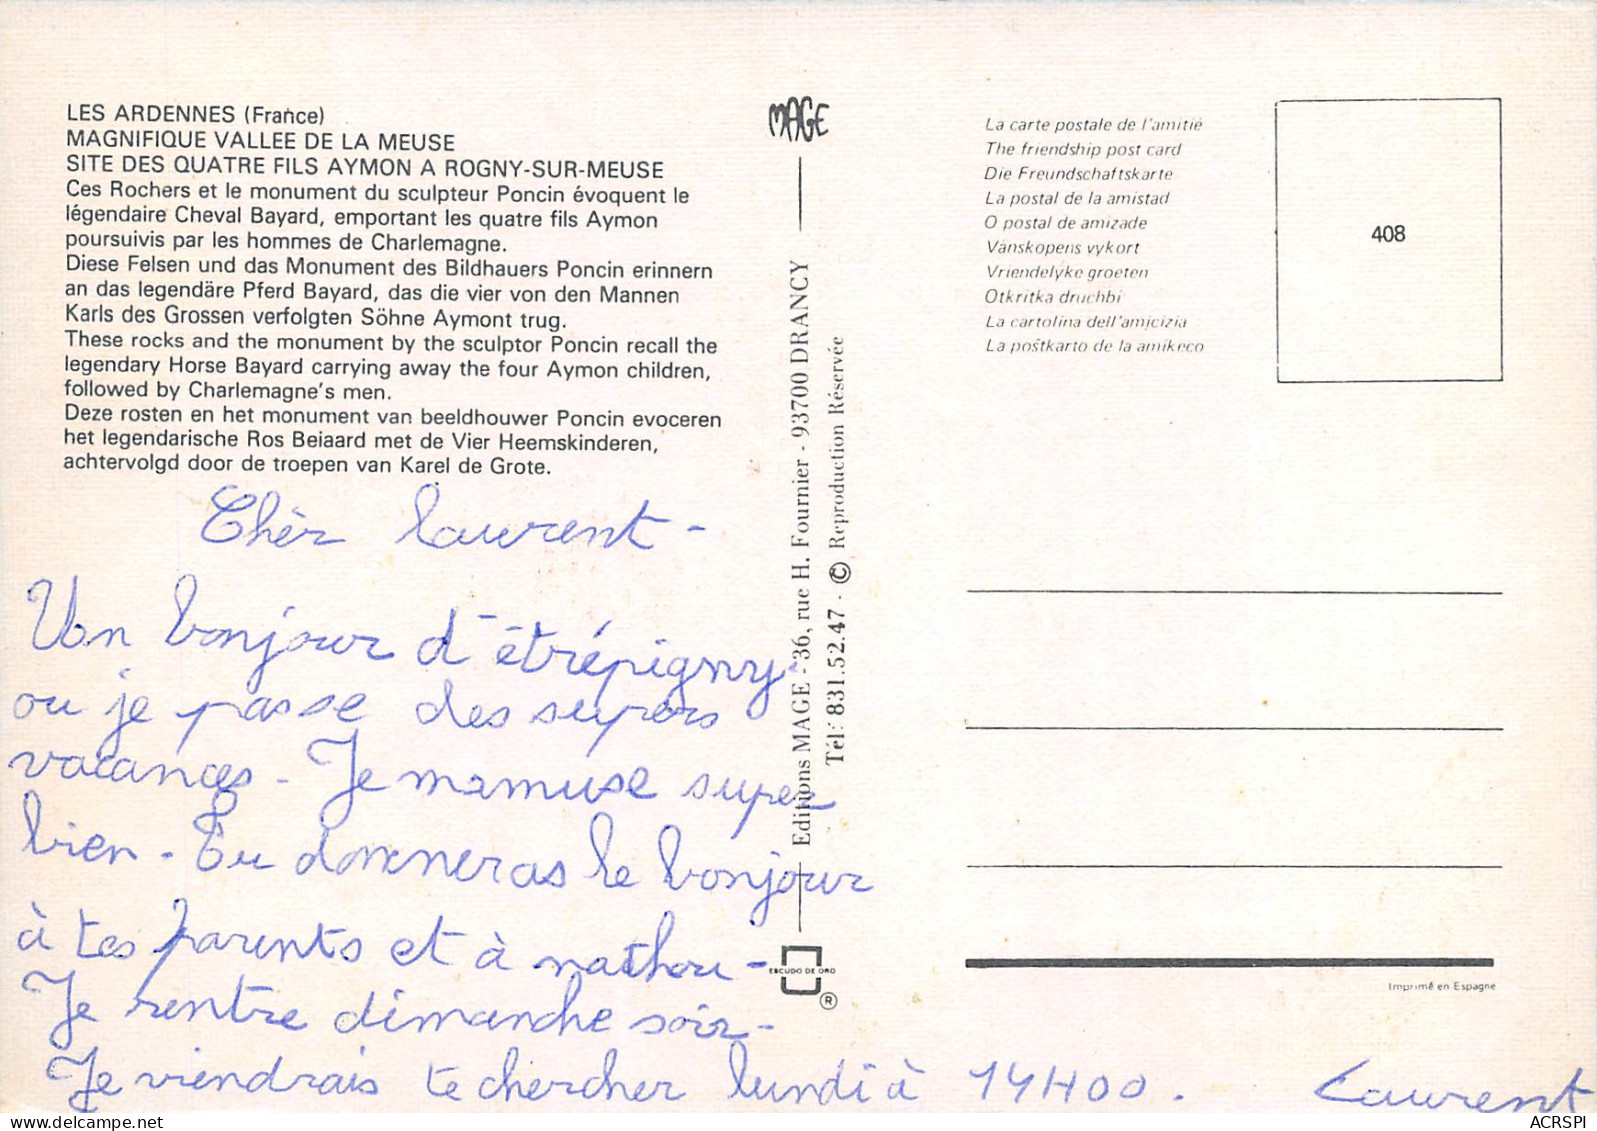 LES ARDENNES (France)
MAGNIFIQUE VALLEE DE LA MEUSE
SITE DES QUATRE FILS AYMON A ROGNY-SUR-MEUSE
Ces Rochers et le monument du sculpteur Poncin évoquent le
légendaire Cheval Bayard, emportant les quatre fils Aymon
poursuivis par les hommes de Charlemagne.
Diese Felsen und das Monument des Bildhauers Poncin erinnern
an das legendäre Pferd Bayard, das die vier von den Mannen
Karls des Grossen verfolgten Söhne Aymont trug.
These rocks and the monument by the sculptor Poncin recall the
legendary Horse Bayard carrying away the four Aymon children,
followed by Charlemagne's men.
Deze rosten en het monument van beeldhouwer Poncin evoceren
het legendarische Ros Beiaard met de Vier Heemskinderen,
achtervolgd door de troepen van Karel de Grote.
Chèr Laurent -
Un bonjour d'étrépigny
ou je passe des supers
vacances - Je mamuse super
bien - Tu donneras le bonjour
à tes parents et à nathou -
Je rentre dimanche soir -
Je viendrais te chercher lundi à 14H00.
Laurent
MAGE
Editions MAGE - 36, rue H. Fournier - 93700 DRANCY
Tél: 831.52.47 - © Reproduction Réservée
ESCUDO DE ORO
®
La carte postale de l'amitié
The friendship post card
Die Freundschaftskarte
La postal de la amistad
O postal de amizade
Vänskopens vykort
Vriendelyke groeten
Otkritka druchbi
La cartolina dell'amicizia
La poštkarto de la amikeco
408
Imprimé en Espagne
ACRSPI